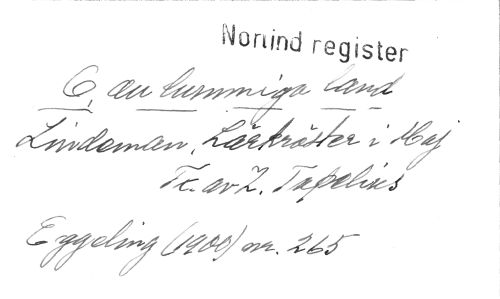 Norlind register
O, du lummiga land
Lindeman, Lärkröster i Maj
Tx. av Z. Topelius
Eggeling (1900) nr. 265